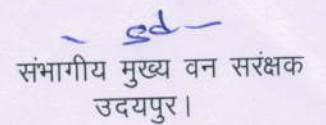 - sd -
संभागीय मुख्य वन सरंक्षक
उदयपुर।